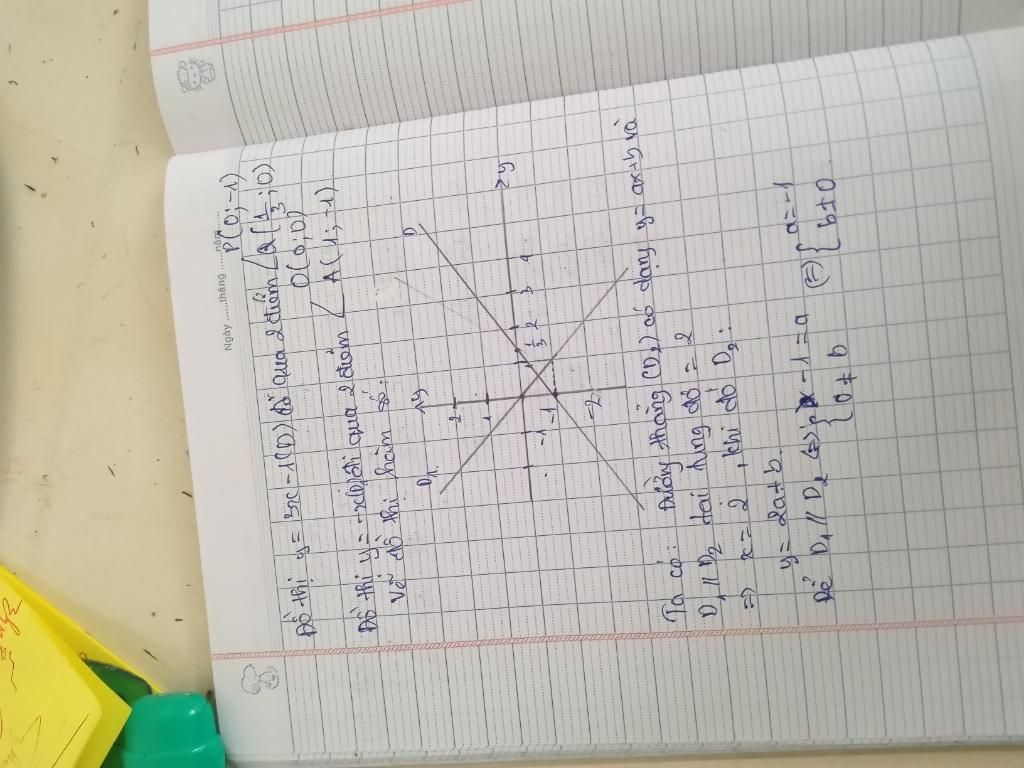 Ngày ......tháng ......năm......
P(0;-1)
Đồ thị y = 3x - 1 (D) đi qua 2 điểm Q(1/3; 0)
O(0;0)
Đồ thị y = -x(D₁) đi qua 2 điểm A(1;-1)
Vẽ đồ thị hàm số:
D₁ y D
2
1
-1 1/3 2 3 4 y
-1
-2
Ta có: Đường thẳng (D₂) có dạng y = ax+b và
D₁ // D₂ tại tung độ = 2
=> x = 2, khi đó D₂:
y = 2a + b
Để D₁ // D₂ (=) { -1 = a (=) { a = -1
0 ≠ b b ≠ 0